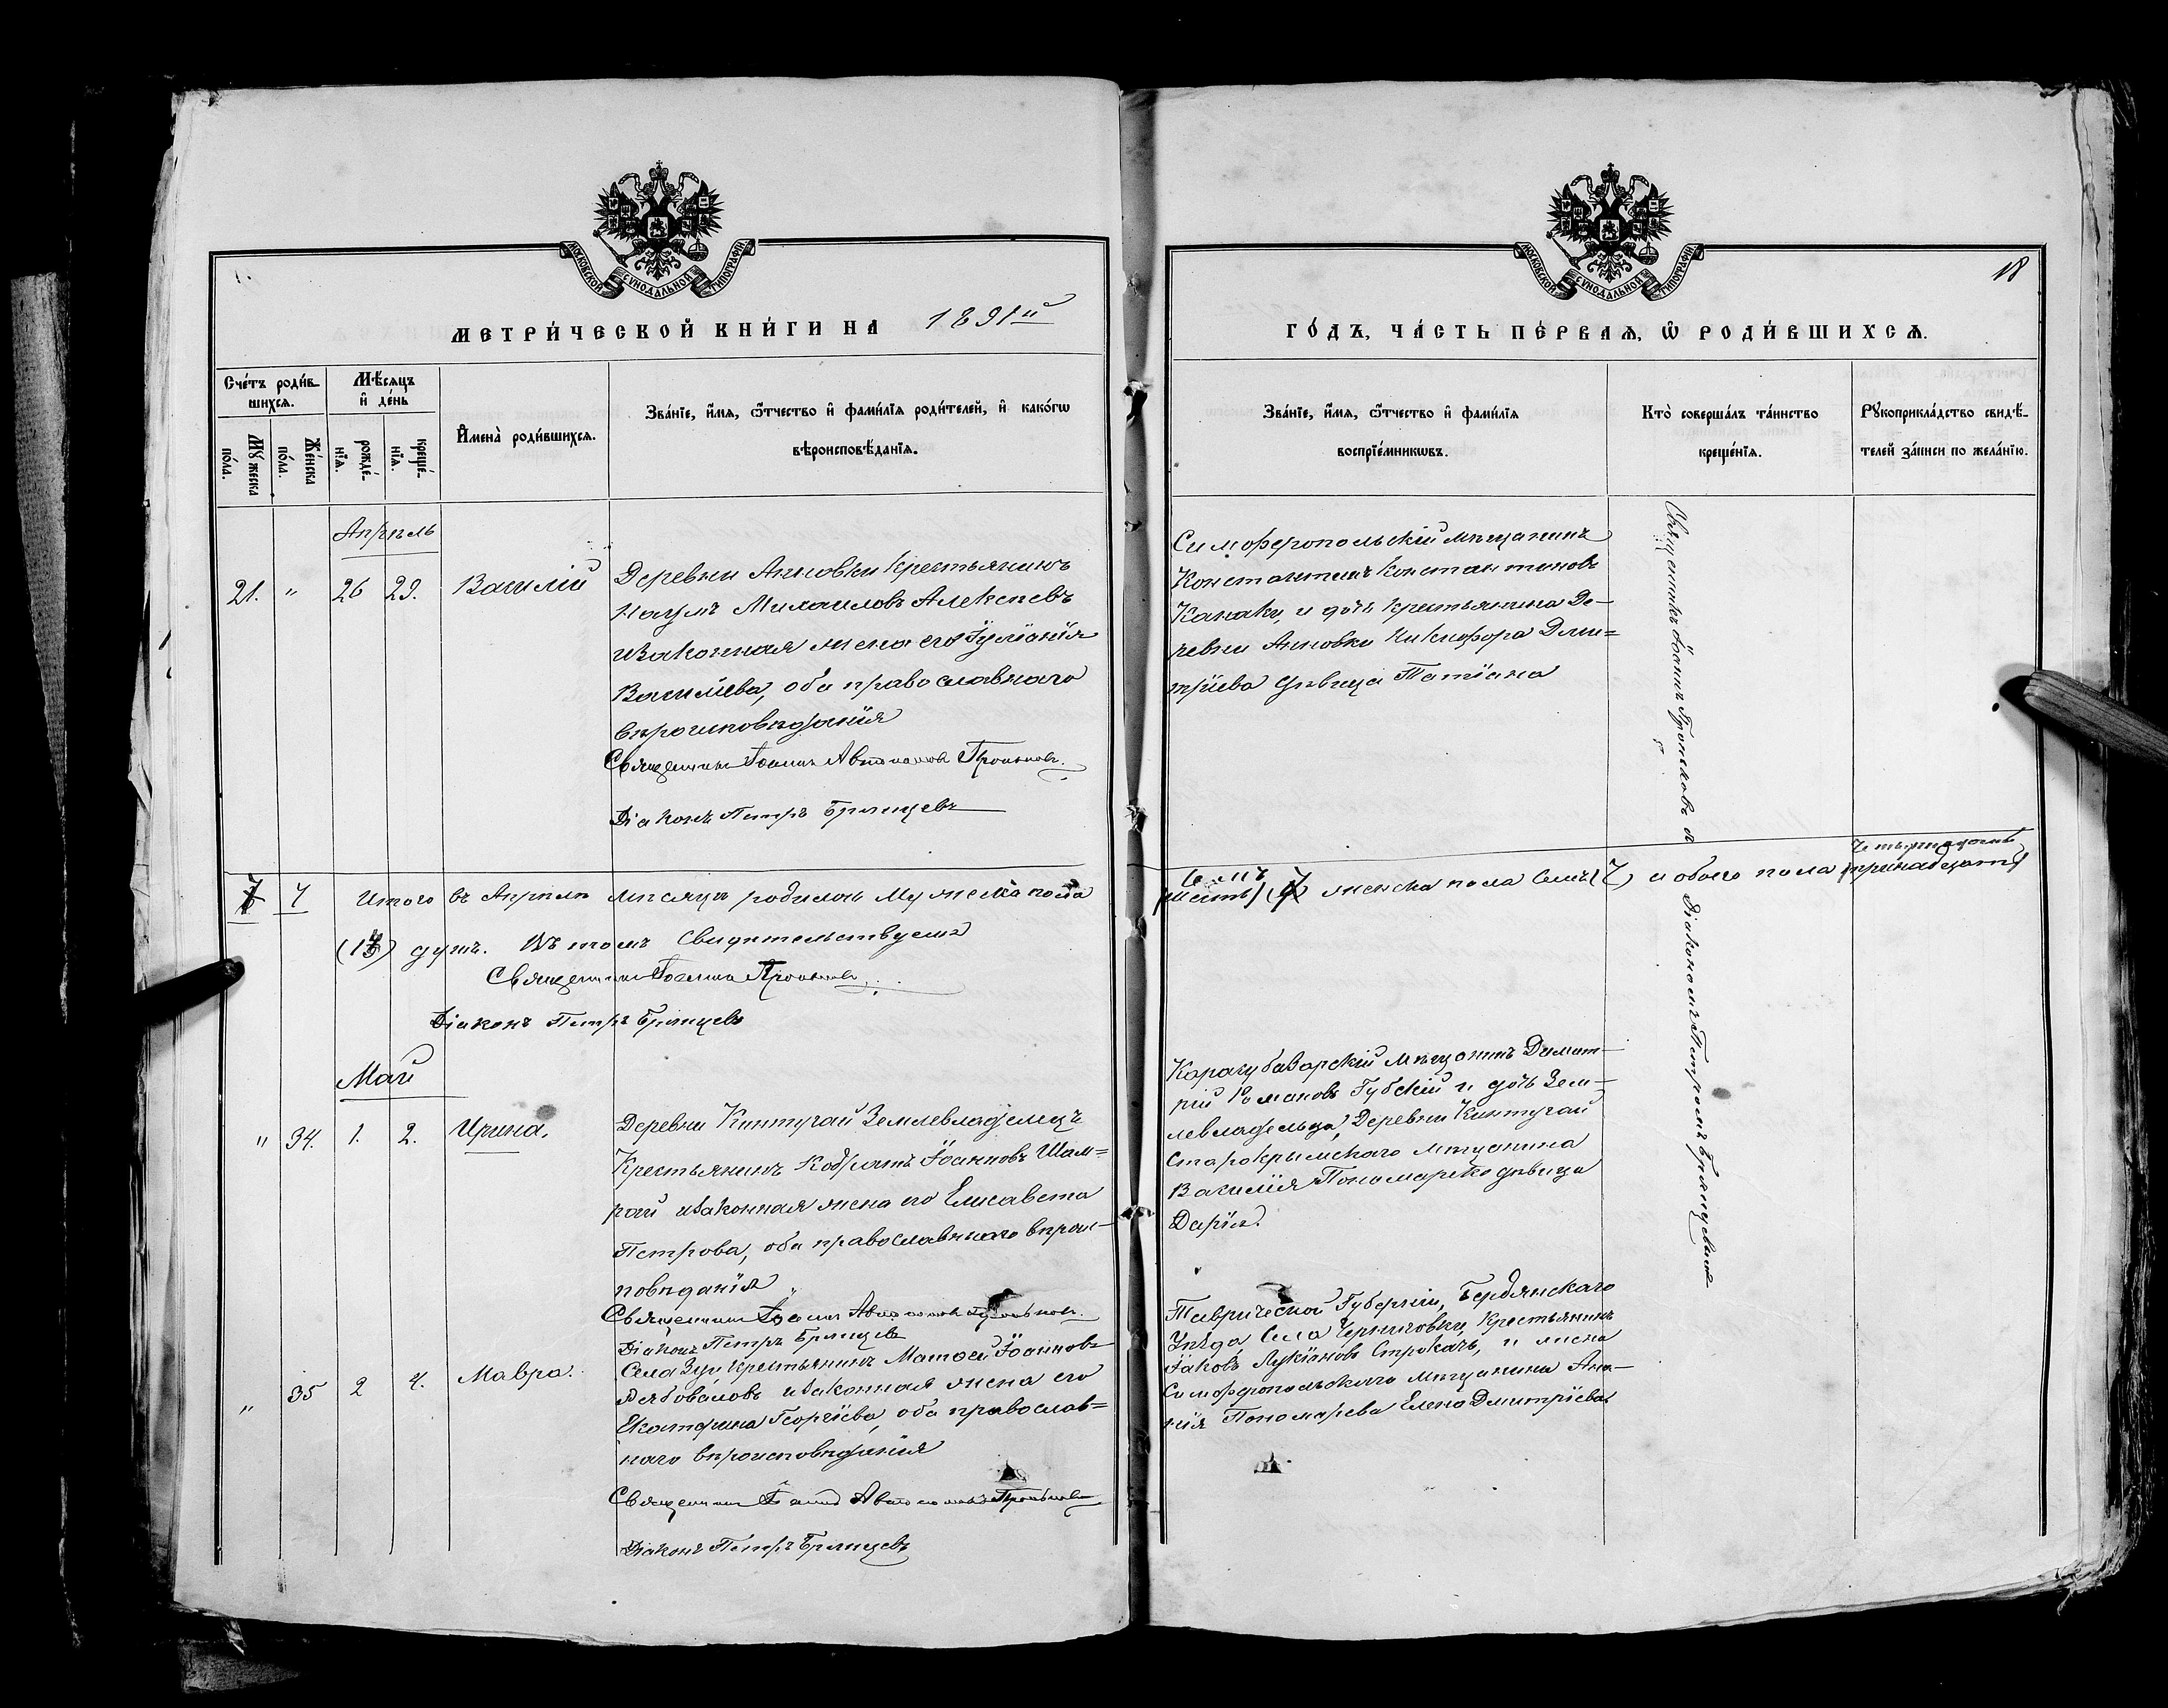 МОСКОВСКОЙ СѴНОДАЛЬНОЙ ТИПОГРАФІИ
МЕТРИ́ЧЕСКОЙ КНИ́ГИ НА 1891й
Сче́тъ роди́в-
шихсѧ.
Мѣ́сѧцъ
и҆ де́нь
Мꙋ́жеска
по́ла.
Же́нска
по́ла.
рожде́-
нїѧ.
креще́-
нїѧ.
И҆мена̀ роди́вшихсѧ.
Зва́нїе, и҆́мѧ, ѻ҆́тчество и҆ фами́лїѧ роди́телей, и҆ како́гѡ
вѣроисповѣ́данїѧ.
Апрѣль
21. " 26 29. Василій
Деревни Анновки крестьянинъ
Наумъ Михаиловъ Алексѣевъ
и законная жена его Іуліанія
Василіева, оба православнаго
вѣроисповѣданія
Священникъ Іоаннъ Автономовъ
Діаконъ Петръ Брянцевъ
7 7 Итого въ Апрѣлѣ мѣсяцѣ родилось мужеска пола
(14) душъ. Въ томъ свидѣтельствуемъ
Священникъ Іоаннъ
Діаконъ Петръ Брянцевъ
Май
" 34. 1. 2. Ирина.
Деревни Кинтугай Землевладѣлецъ
Крестьянинъ Кодратъ Іоанновъ Шам=
рай и законная жена его Елисавета
Петрова, оба православнаго вѣроис-
повѣданія
Священникъ Іоаннъ Автономовъ
Діаконъ Петръ Брянцевъ
" 35 2 4. Мавра.
Села Зуи крестьянинъ Матѳей Іоанновъ
и законная жена его
Екатерина Георгіева, оба православ=
наго вѣроисповѣданія
Священникъ Іоаннъ Автономовъ
Діаконъ Петръ Брянцевъ
МОСКОВСКОЙ СѴНОДАЛЬНОЙ ТИПОГРАФІИ
18
ГО́ДЪ, ЧА́СТЬ ПЕ́РВАѦ, Ѡ҆ РОДИ́ВШИХСѦ.
Зва́нїе, и҆́мѧ, ѻ҆́тчество и҆ фами́лїѧ
воспрїе́мникѡвъ.
Кто̀ соверша́лъ та́инство
креще́нїѧ.
Рꙋкоприкла́дство свидѣ́-
телей за́писи по жела́нїю.
Симферопольскій мѣщанинъ
Константинъ Константиновъ
Канаки, и дочь крестьянина де-
ревни Анновки Никифора Дми=
тріева дѣвица Татіана
седмь четырнадцать
(шесть) (7) женска пола семь (7) и обоего пола (тринадцать)
Карасубазарскій мѣщанинъ Димит-
рій Романовъ Губскій и дочь Зем-
левладѣльца, Деревни Кинтугай
Старокрымскаго мѣщанина
Василія Пономаренко дѣвица
Дарія.
Таврической Губерніи, Бердянскаго
Уѣзда, Села Черниговки, Крестьянинъ
Іаковъ Лукіановъ Строкачъ, и жена
Симферопольскаго мѣщанина Ана-
нія Пономарева Елена Димитріева
Священникъ Іоаннъ
Діакономъ Петромъ Брянцевымъ